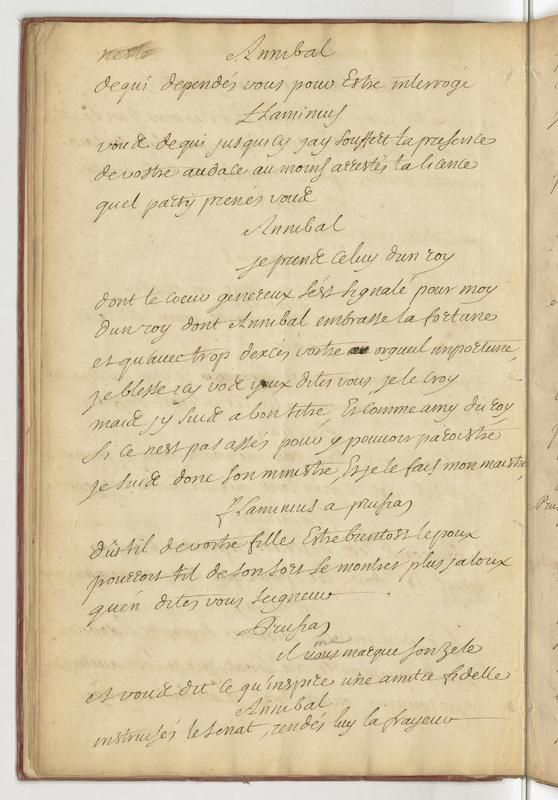 Annibal
de qui dependés vous pour Estre interrogé
flaminius
vous de qui jusqu'icy jay souffert la presence
de vostre audace au moins arrestés la licence
quel party prenés vous
Annibal
je prens celuy d'un roy
dont le coeur genereux s'est signalé pour moy
d'un roy dont Annibal embrasse la fortune
et qu'avec trop d'excés vostre orgueil importune
je blesse icy vos yeux dites vous, je le croy
mais jy suis a bon titre, Et comme amy du roy
si ce n'est pas assés pour y pouvoir paroistre
je suis donc son ministre, Et je le fais mon maistre
flaminius a prusias
dust il de vostre fille Estre bientost lepoux
pourroit til de son sort se montrer plus jaloux
qu'en dites vous seigneur
Prusias
il me marque son zele
et vous dit ce qu'inspire une amitie fidelle
Annibal
instruisés le senat, rendés luy la frayeur